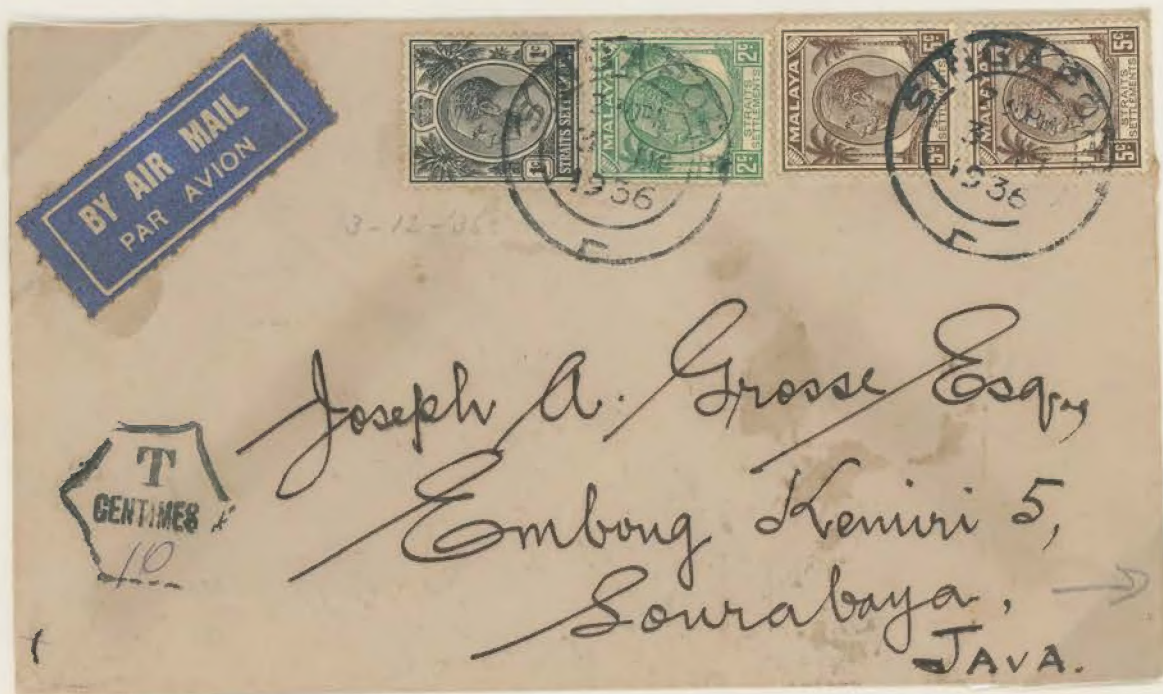 BY AIR MAIL
PAR AVION
1c STRAITS SETTLEMENTS 1c
MALAYA 2c STRAITS SETTLEMENTS 2c
MALAYA 5c STRAITS SETTLEMENTS 5c
MALAYA 5c STRAITS SETTLEMENTS 5c
SINGAPORE
1936
SINGAPORE
1936
3-12-36
Joseph A. Grosse Esq.,
Embong Kemiri 5,
Sourabaya,
JAVA.
T
CENTIMES
10